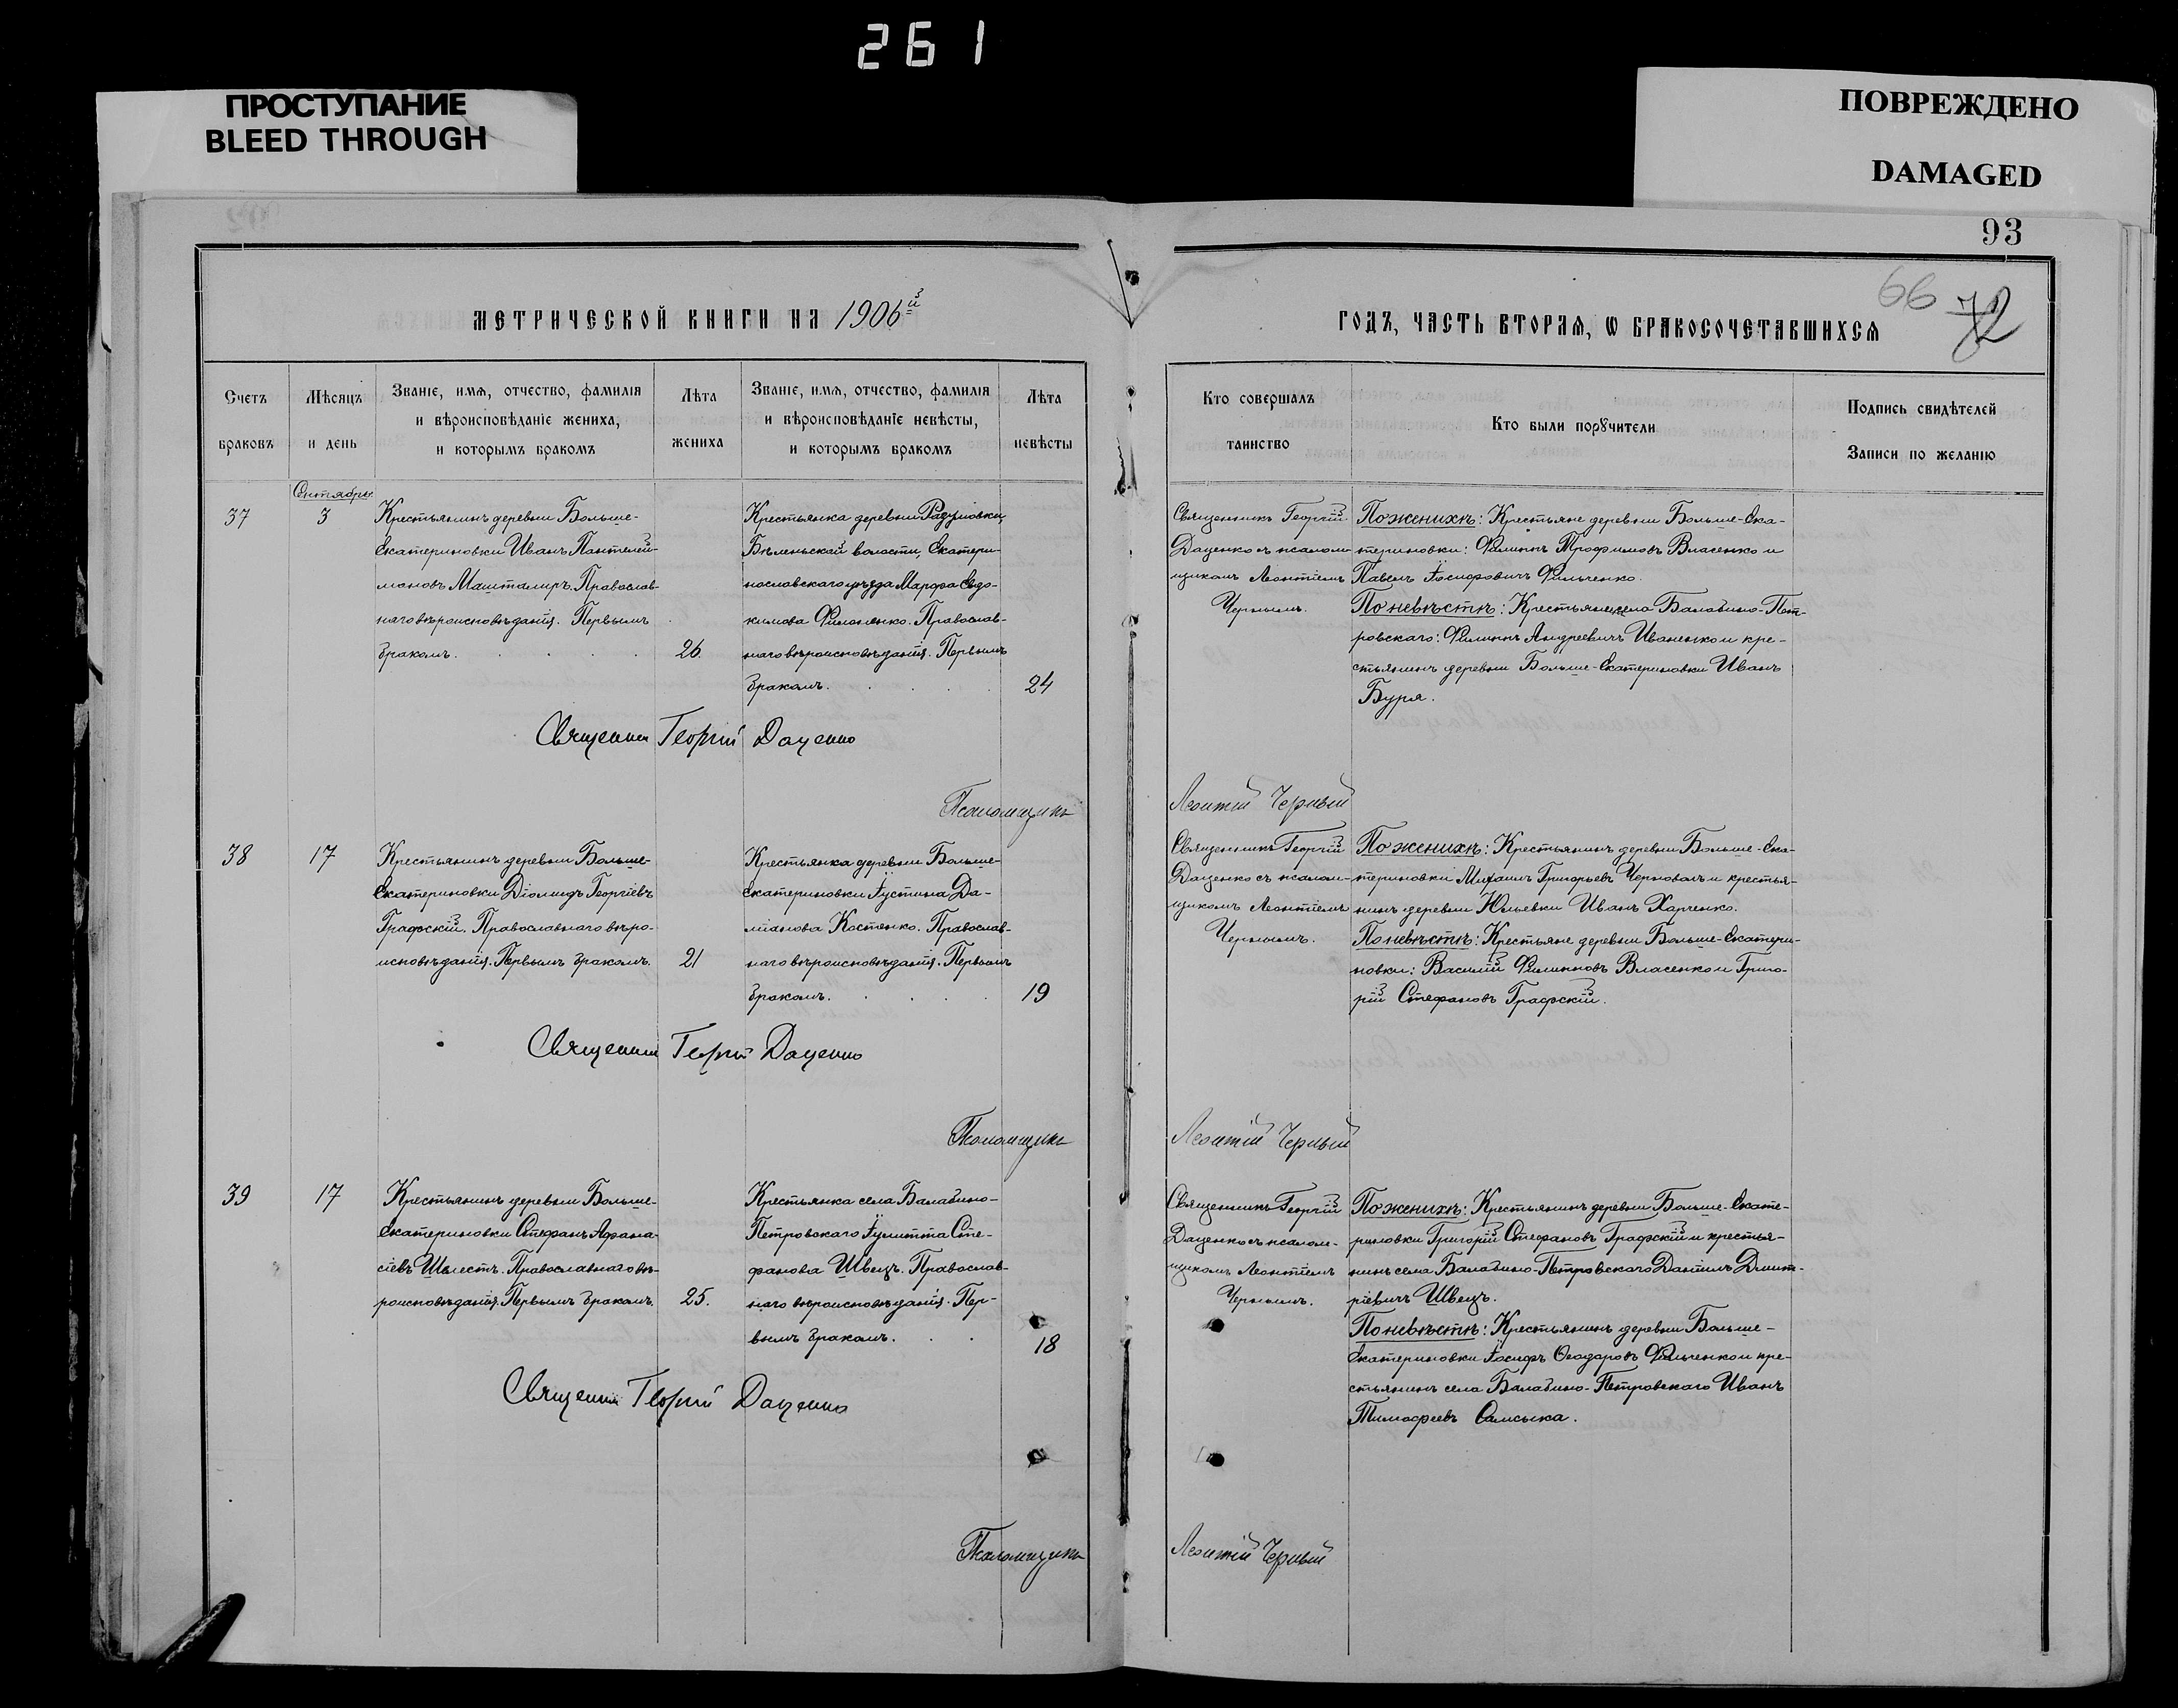 261
ПРОСТУПАНИЕ
BLEED THROUGH
ПОВРЕЖДЕНО
DAMAGED
93
66 72
МЕТРИЧЕСКОЙ КНИГИ НА 1906й
ГОДЪ, ЧАСТЬ ВТОРАѦ, Ѡ БРАКОСОЧЕТАВШИХСѦ
Счетъ браковъ
Мѣсяцъ и день
Званіе, имѧ, отчество, фамилія
и вѣроисповѣданіе жениха,
и которымъ бракомъ
Лѣта жениха
Званіе, имѧ, отчество, фамилія
и вѣроисповѣданіе невѣсты,
и которымъ бракомъ
Лѣта невѣсты
Кто совершалъ таинство
Кто были порꙋчители
Подпись свидѣтелей
Записи по желанію
37
Сентябрь
3
Крестьянинъ деревни Больше-
Екатериновки Иванъ Пантелей-
моновъ Машталиръ. Православ-
наго вѣроисповѣданія. Первымъ
бракомъ.
26.
Крестьянка деревни Разумовки,
Бѣленьской волости, Екатери-
нославскаго уѣзда Марфа Евдо-
кимова Филоненко. Православ-
наго вѣроисповѣданія. Первымъ
бракомъ.
24
Священникъ Георгій
Даценко съ псалом-
щикомъ Леонтіемъ
Чернымъ.
По женихѣ: Крестьяне деревни Больше-Ека-
териновки: Филиппъ Трофимовъ Власенко и
Павелъ Іосифовичъ Фильченко.
По невѣстѣ: Крестьянинъ села Балабино-Пет-
ровскаго: Филиппъ Андреевичъ Иваненко и кре-
стьянинъ деревни Больше-Екатериновки Иванъ
Буря.
Священник Георгій Даценко
Псаломщикъ Леонтій Черный
38
17
Крестьянинъ деревни Больше-
Екатериновки Діомидъ Георгіевъ
Графскій. Православнаго вѣро-
исповѣданія. Первымъ бракомъ.
21
Крестьянка деревни Больше-
Екатериновки Іустина Да-
міанова Костенко. Православ-
наго вѣроисповѣданія. Первымъ
бракомъ.
19
Священникъ Георгій
Даценко съ псалом-
щикомъ Леонтіемъ
Чернымъ.
По женихѣ: Крестьянинъ деревни Больше-Ека-
териновки Михаилъ Григорьевъ Черновалъ и крестья-
нинъ деревни Юльевки Иванъ Харченко.
По невѣстѣ: Крестьяне деревни Больше-Екатери-
новки: Василій Филипповъ Власенко и Григо-
рій Стефановъ Графскій.
Священник Георгій Даценко
Псаломщикъ Леонтій Черный
39
17
Крестьянинъ деревни Больше-
Екатериновки Стефанъ Афана-
сіевъ Шелестъ. Православнаго вѣ-
роисповѣданія. Первымъ бракомъ.
25.
Крестьянка села Балабино-
Петровскаго Іулитта Сте-
фанова Швецъ. Православ-
наго вѣроисповѣданія. Пер-
вымъ бракомъ.
18
Священникъ Георгій
Даценко съ псалом-
щикомъ Леонтіемъ
Чернымъ.
По женихѣ: Крестьянинъ деревни Больше-Екате-
риновки Григорій Стефановъ Графскій и крестья-
нинъ села Балабино-Петровскаго Даніилъ Дмит-
ріевичъ Швецъ.
По невѣстѣ: Крестьянинъ деревни Больше-
Екатериновки Іосифъ Ѳеодоровъ Фильченко и кре-
стьянинъ села Балабино-Петровскаго Иванъ
Тимофеевъ Самсыка.
Священник Георгій Даценко
Псаломщикъ Леонтій Черный